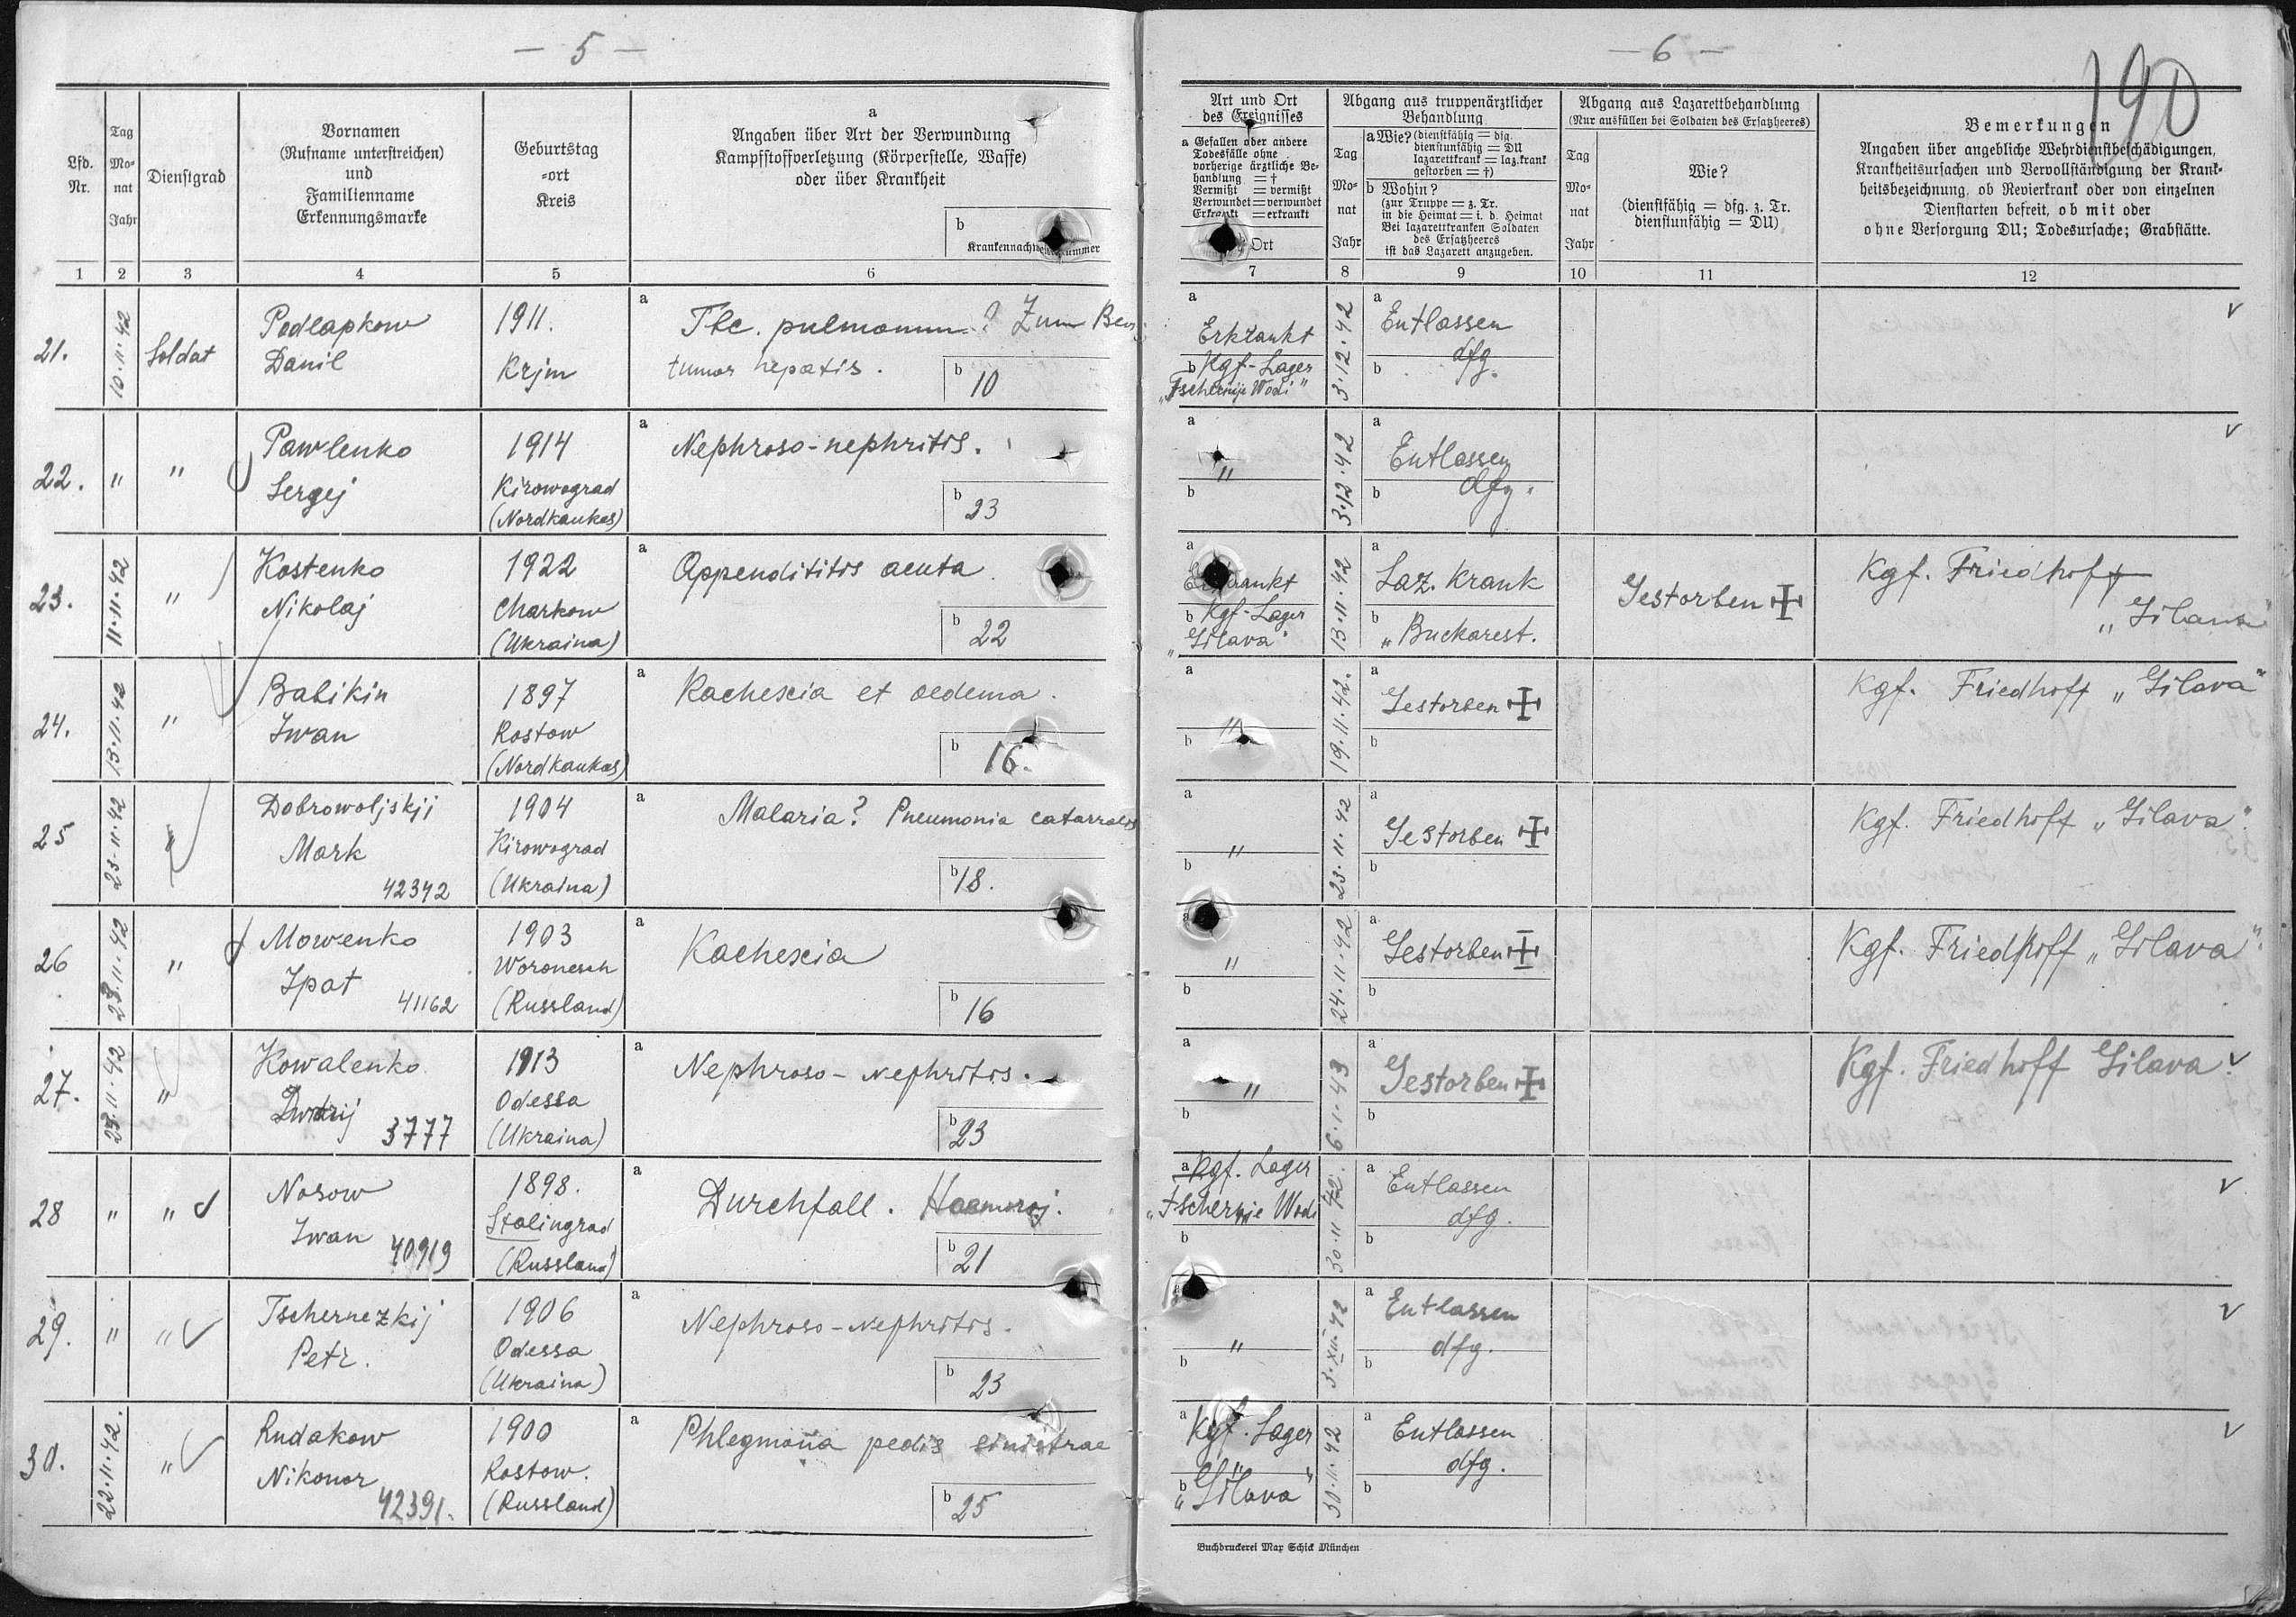 — 5 —
Lfd.
Nr.
Tag
Mo-
nat
Jahr
Dienstgrad
Vornamen
(Rufname unterstreichen)
und
Familienname
Erkennungsmarke
Geburtstag
-ort
Kreis
a
Angaben über Art der Verwundung
Kampfstoffverletzung (Körperstelle, Waffe)
oder über Krankheit
b
1 2 3 4 5 6
21. 10.11.42 Soldat Podlapkow
Danil
1911.
Krjm
a Tbc. pulmonum.? Zum
tumor hepatis.
b 10
22. " " Pawlenko
Sergej
1914
Kirowograd
(Nordkaukas)
a Nephroso-nephritis.
b 23
23. 11.11.42 " Kostenko
Nikolaj
1922
Charkow
(Ukraina)
a Appendititis acuta.
b 22
24. 13.11.42 " Babikin
Iwan
1897
Rostow
(Nordkaukas)
a Kachexia et oedema.
b 16.
25 23.11.42 " Dobrowoljskji
Mark
42342
1904
Kirowograd
(Ukraina)
a Malaria? Pneumonia
b 18.
26 23.11.42 " Mowenko
Ipat
41162
1903
Woronesch
(Russland)
a Kachexia
b 16
27. 23.11.42 " Kowalenko
3777
1913
Odessa
(Ukraina)
a Nephroso-Nephritis.
b 23
28 " " Nosow
Iwan
40919
1898.
Stalingrad
(Russland)
a Durchfall. Haemoroj.
b 21
29. " " Tschernezkij
Petr.
1906
Odessa
(Ukraina)
a Nephroso-Nephritis.
b 23
30. 22.11.42. " Rudakow
Nikonor
42391.
1900
Rostow.
(Russland)
a Phlegmona pedis sinistrae
b 25
— 6 —
190
Art und Ort
des Ereignisses
a Gefallen oder andere
Todesfälle ohne
vorherige ärztliche Be-
handlung = †
Vermißt = vermißt
Verwundet = verwundet
Erkrankt = erkrankt
Ort
Abgang aus truppenärztlicher
Behandlung
Tag
Mo-
nat
Jahr
a Wie? (dienstfähig = dfg.
dienstunfähig = DU
lazarettkrank = laz.krank
gestorben = †)
b Wohin?
(zur Truppe = z. Tr.
in die Heimat = i. d. Heimat
Bei lazarettkranken Soldaten
des Ersatzheeres
ist das Lazarett anzugeben.
Abgang aus Lazarettbehandlung
(Nur ausfüllen bei Soldaten des Ersatzheeres)
Tag
Mo-
nat
Jahr
Wie?
(dienstfähig = dfg. z. Tr.
dienstunfähig = DU)
Bemerkungen
Angaben über angebliche Wehrdienstbeschädigungen,
Krankheitsursachen und Vervollständigung der Krank-
heitsbezeichnung, ob Revierkrank oder von einzelnen
Dienstarten befreit, ob mit oder
ohne Versorgung DU; Todesursache; Grabstätte.
7 8 9 10 11 12
a Erkrankt
b Kgf-Lager
"Tschernije Wodi"
3.12.42
a Entlassen
b dfg.
a "
b
3.12.42
a Entlassen
b dfg.
a Erkrankt
b Kgf-Lager
"Gilava"
13.11.42
a Laz. Krank
b "Buckarest.
Gestorben ✠
Kgf. Friedhoff
"Gilava"
a "
b
19.11.42.
a Gestorben ✠
b
Kgf. Friedhoff "Gilava"
a "
b
23.11.42
a Gestorben ✠
b
Kgf. Friedhoff "Gilava".
a "
b
24.11.42
a Gestorben ✠
b
Kgf. Friedhoff "Gilava".
a "
b
6.1.43
a Gestorben ✠
b
Kgf. Friedhoff Gilava.
a Kgf. Lager
"Tschernje Wodi
b
30.11.42.
a Entlassen
dfg.
b
a "
b
3.XII.42
a Entlassen
dfg.
b
a Kgf. Lager
b "Gilava"
30.11.42
a Entlassen
dfg.
b
Buchdruckerei Max Schick München